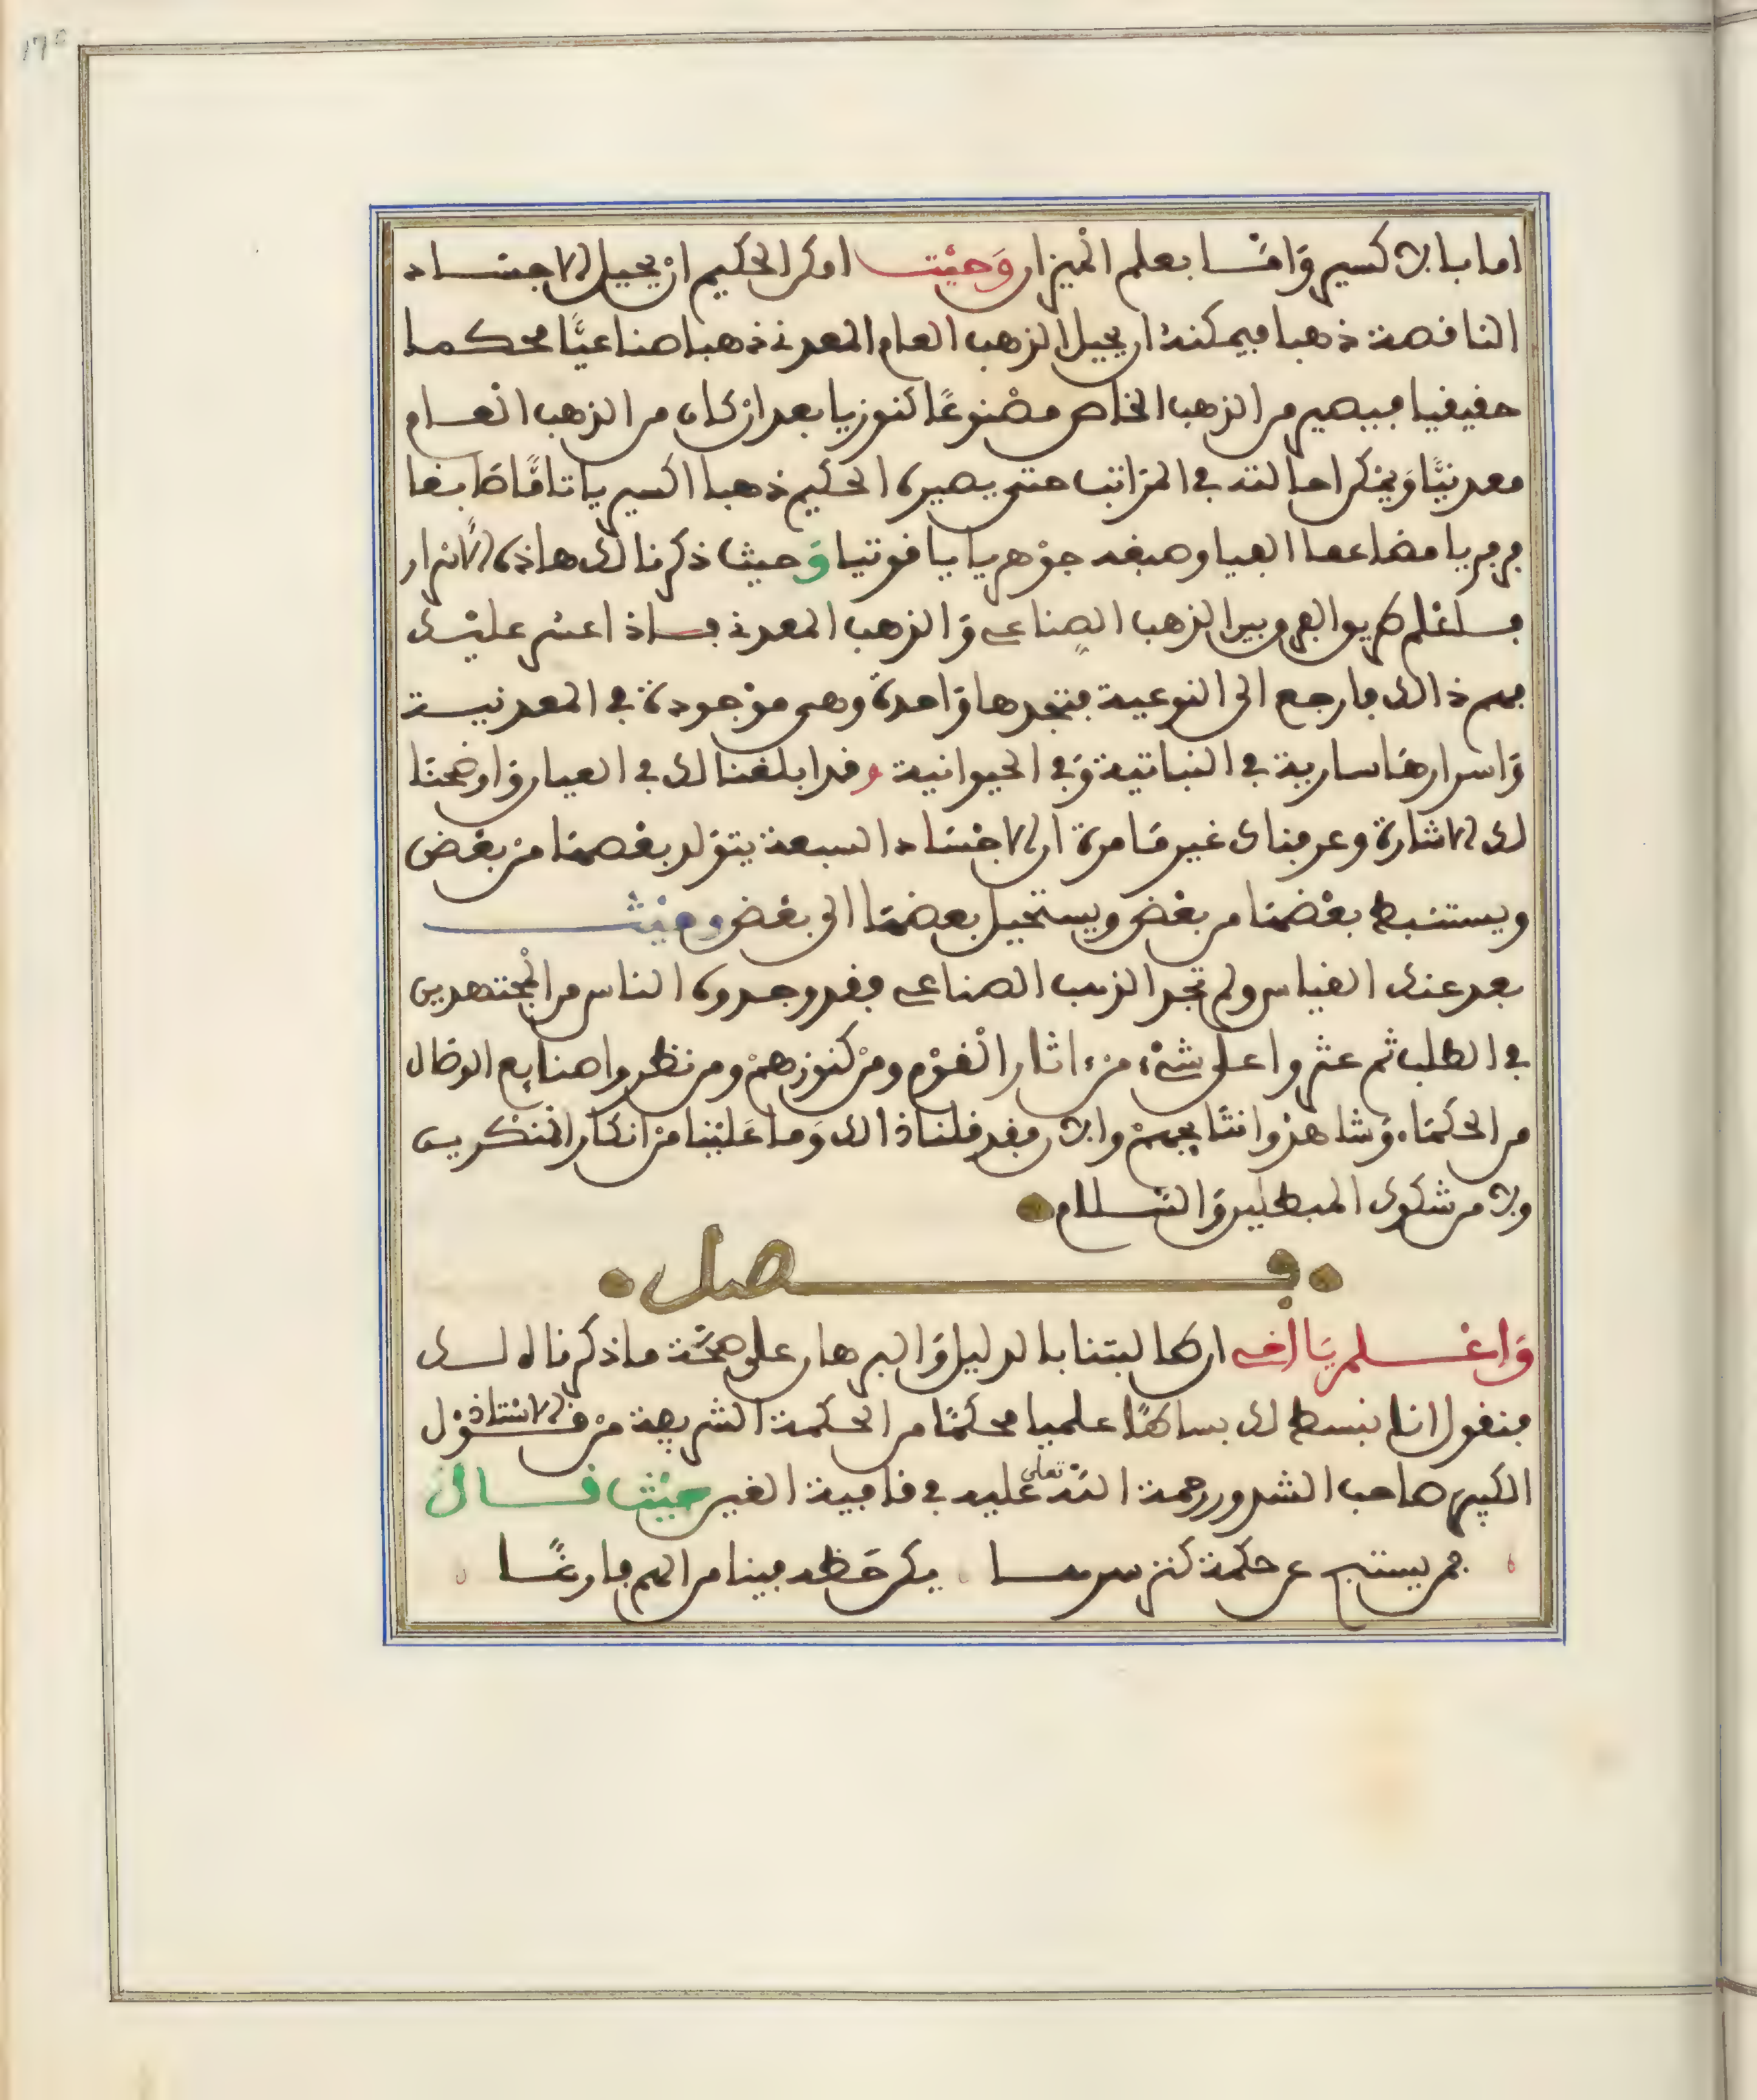 اما بالاكسير وَامَّا بعلم الْميزان وَحَيْث امكن الحكيم انْ يحيل الاجسَاد
الناقصة ذهبا فيمكنهُ ان يحيل الذهب العام المعدني ذهبا صناعيًّا محكما
حقيقيا فيصير من الذهب الخاص مصْنوعًا كنوزيا بعد انْ كان من الذهب الْعام
معدنيًّا وَيمْكن احالته في المرَاتب حتى يصيره الحكيم ذهبا اكسيريا تامًّا صَابغا
فرفريا مضاعفا الفيا وصبغه جوْهريا ياقوتيا وَحيث ذكرنا لك هاذه الاسْرار
فلتعْلم طريق الفرق بين الذهب الصناعي وَالذهب المعدني فاذا عسر عليْك
فهم ذالك فارجع الى النوعية فتجدها وَاحدة وهي موْجودة في المعدنيـة
وَاسرارهَا سارية في النباتية وَفي الحيوانية وقد ابلغنا لك في العيار وَاوضحنَا
لك الاشارة وعرفناك غير مَا مرة ان الاجْسَاد السبعة يتوَلد بعْضهَا منْ بعْض
ويستنبط بعْضهَا من بعْض ويستحيل بعضهَا الى بعْض وحيْث
بعد عنك القياس ولم تجد الذهب الصناعي فقد وجدوه الناس من الْمجتهدين
في الطلب ثم عثروا على شيْء منْ ءاثار الْقوْم ومنْ كنوزهمْ ومن نظروا صنايع الوصَال
من الحكمَاء وَشاهدُوا نتَايجهمْ والان فقد قلنا ذالك وَما عَليْنا منْ انكار الْمنْكرين
ولا من شكوك المبطلين وَالسَّلام
فصل
وَاعْـلم يَا أخي ان طالبتنا بالدليل وَالبرهان على صحَّة ما ذكرناه لـك
فنقول انا نبسط لك بساطًا علميا محكمًا من الحكمة الشريفة منْ قوْل الاسْتاذ
الكبير صاحب الشذور رحمة الله تعلى عليه في قافية الغين حيْث قـال
فمن يستبح عن حكمة كنز هرمسا . يكن حَظه فينا من الهم فارغًـا